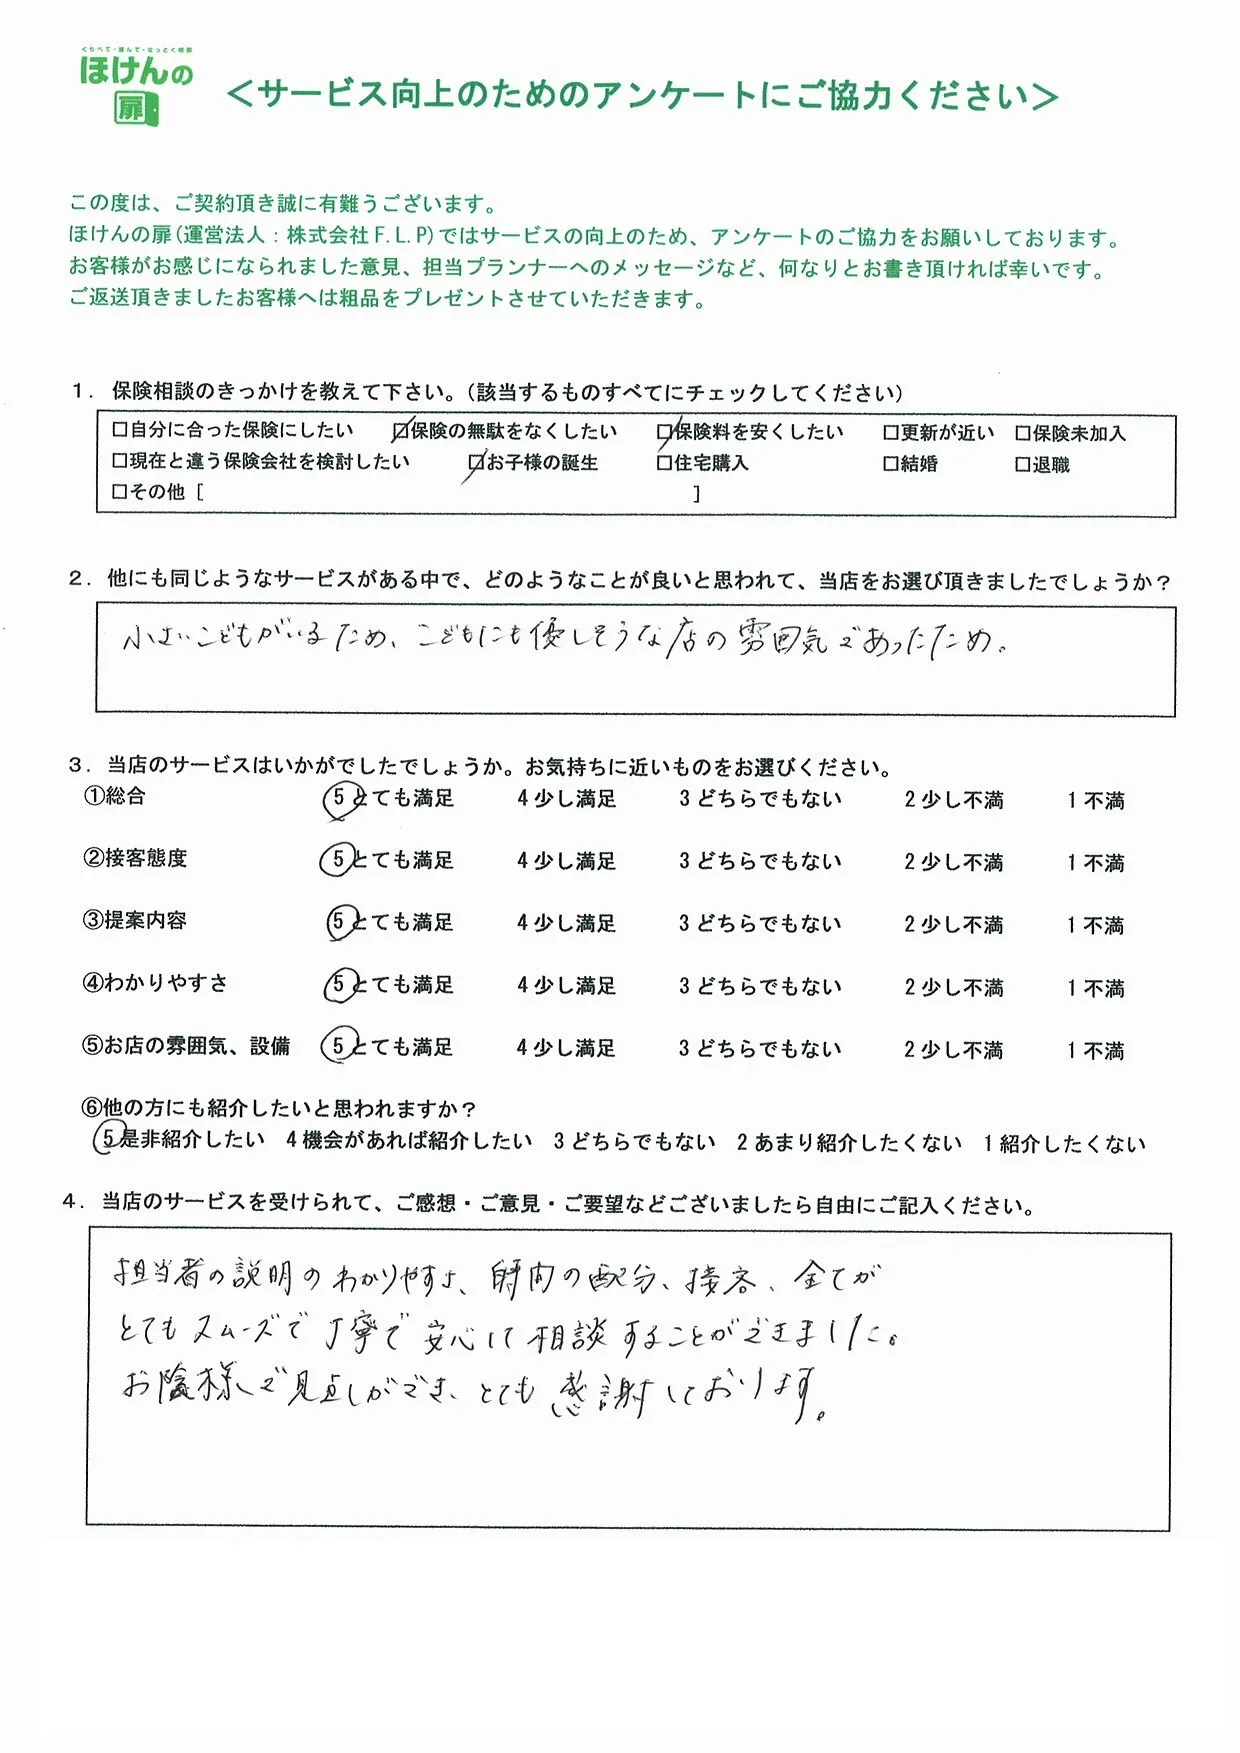 くらべて・選んで・なっとく相談
ほけんの
扉
＜サービス向上のためのアンケートにご協力ください＞
この度は、ご契約頂き誠に有難うございます。
ほけんの扉(運営法人：株式会社F.L.P)ではサービスの向上のため、アンケートのご協力をお願いしております。
お客様がお感じになられました意見、担当プランナーへのメッセージなど、何なりとお書き頂ければ幸いです。
ご返送頂きましたお客様へは粗品をプレゼントさせていただきます。
1. 保険相談のきっかけを教えて下さい。（該当するものすべてにチェックしてください）
□自分に合った保険にしたい ☑保険の無駄をなくしたい ☑保険料を安くしたい □更新が近い □保険未加入
□現在と違う保険会社を検討したい ☑お子様の誕生 □住宅購入 □結婚 □退職
□その他 [ ]
2. 他にも同じようなサービスがある中で、どのようなことが良いと思われて、当店をお選び頂きましたでしょうか？
小さいこどもがいるため、こどもにも優しそうな店の雰囲気であったため。
3. 当店のサービスはいかがでしたでしょうか。お気持ちに近いものをお選びください。
①総合 5 とても満足 4 少し満足 3 どちらでもない 2 少し不満 1 不満
②接客態度 5 とても満足 4 少し満足 3 どちらでもない 2 少し不満 1 不満
③提案内容 5 とても満足 4 少し満足 3 どちらでもない 2 少し不満 1 不満
④わかりやすさ 5 とても満足 4 少し満足 3 どちらでもない 2 少し不満 1 不満
⑤お店の雰囲気、設備 5 とても満足 4 少し満足 3 どちらでもない 2 少し不満 1 不満
⑥他の方にも紹介したいと思われますか？
5 是非紹介したい 4 機会があれば紹介したい 3 どちらでもない 2 あまり紹介したくない 1 紹介したくない
4. 当店のサービスを受けられて、ご感想・ご意見・ご要望などございましたら自由にご記入ください。
担当者の説明のわかりやすさ、時間の配分、接客、全てが
とてもスムーズで丁寧で安心して相談することができました。
お陰様で見直しができ、とても感謝しております。